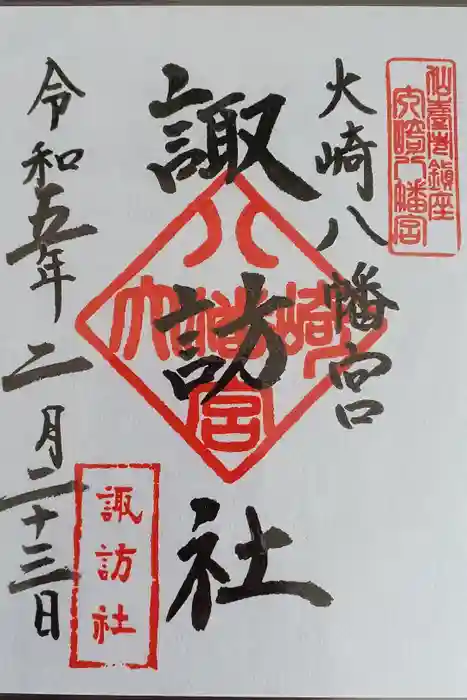 仙臺市鎮座
大崎八幡宮
大崎八幡宮
諏訪社
大崎八幡宮
諏訪社
令和五年二月二十三日